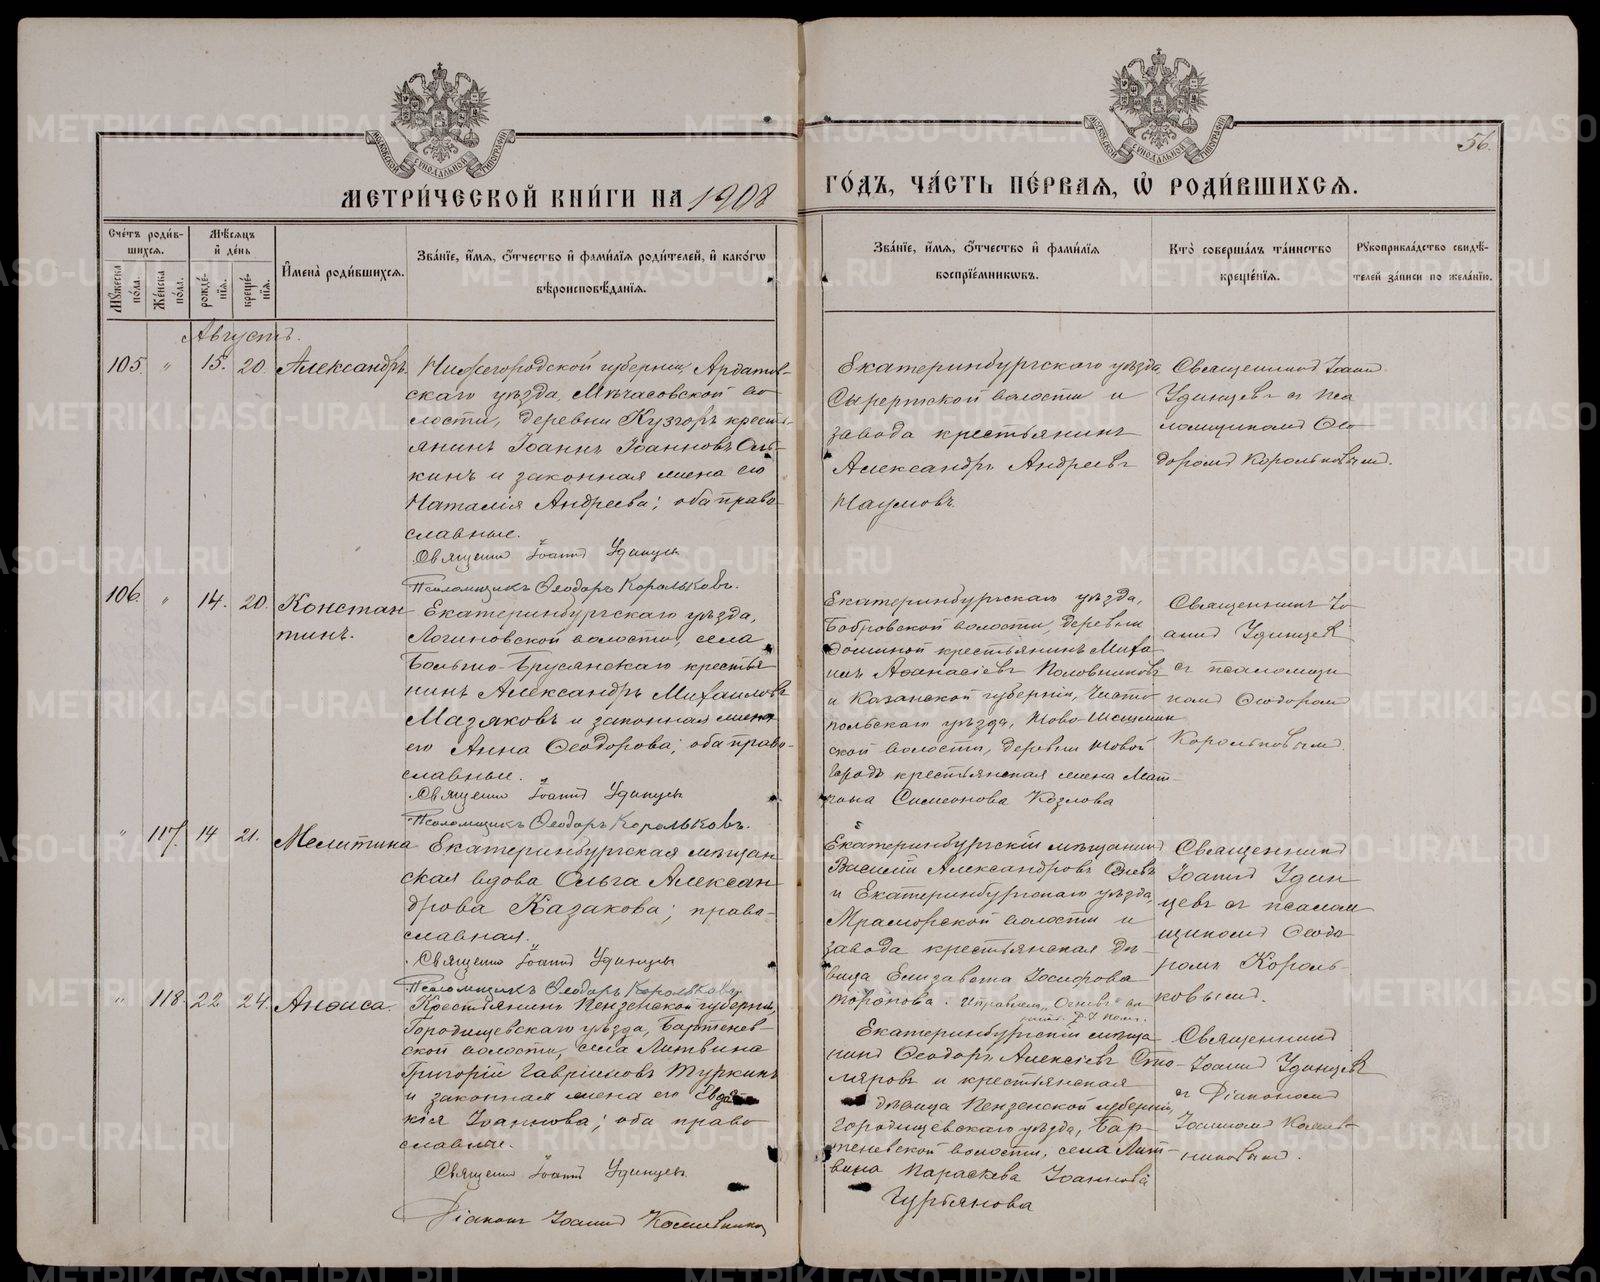 56.
МЕТРИ́ЧЕСКОЙ КНИ́ГИ НА 1908
ГО́ДЪ, ЧА́СТЬ ПЕ́РВАЯ, Ѡ҆ РОДИ́ВШИХСЯ.
Сче́тъ роди́в-
шихся.
Мѹ́жеска
по́ла.
Же́нска
по́ла.
Мѣ́сяцъ
и҆ де́нь
рожде́-
нїя.
креще́-
нїя.
И҆мена̀ роди́вшихся.
Зва́нїе, и҆́мя, ѻ҆́тчество и҆ фами́лїя роди́телей, и҆ како́гѡ
вѣроисповѣ́данїя.
Зва́нїе, и҆́мя, ѻ҆́тчество и҆ фами́лїя
воспрїе́мникѡвъ.
Кто̀ соверша́лъ та́инство
креще́нїя.
Рѹкоприкла́дство свидѣ́-
телей за́писи по жела́нїю.
Августъ.
105. " 15. 20. Александръ
Нижегородской губерніи, Ардатов-
скаго уѣзда, во-
лости, деревни крестья-
янинъ Іоаннъ Іоанновъ
кинъ и законная жена его
Наталія Андреева; оба право-
славные.
Священникъ Іоаннъ Удинцевъ
Псаломщикъ Ѳеодоръ Корольковъ.
Екатеринбургскаго уѣзда,
Сысертской волости и
завода крестьянинъ
Александръ Андреевъ
Наумовъ.
Священникъ Іоаннъ
Удинцевъ съ пса
ломщикомъ Ѳео
доромъ Корольковымъ.
106. " 14. 20. Констан
тинъ.
Екатеринбургскаго уѣзда,
Логиновской волости, села
Больше-Брусянскаго крестья
нинъ Александръ Михаиловъ
Мазяковъ и законная жена
его Анна Ѳеодорова; оба право-
славные.
Священникъ Іоаннъ Удинцевъ
Псаломщикъ Ѳеодоръ Корольковъ.
Екатеринбургскаго уѣзда,
Бобровской волости, деревни
крестьянинъ Миха
илъ Аѳанасіевъ Половниковъ
и Казанской губерніи, Чисто
польскаго уѣзда, Ново-Шешмин
ской волости, деревни Новой
крестьянская жена Мат-
рона Симеонова Козлова
Священникъ Іо
аннъ Удинцевъ
съ псаломщи
комъ Ѳеодоромъ
Корольковымъ.
" 117. 14 21. Мелитина
Екатеринбургская мѣщан
ская вдова Ольга Алексан
дрова Казакова; право-
славная.
Священникъ Іоаннъ Удинцевъ
Псаломщикъ Ѳеодоръ Корольковъ
Екатеринбургскій мѣщанинъ
Василій Александровъ
и Екатеринбургскаго уѣзда,
Мраморской волости и
завода крестьянская дѣ-
вица Елизавета Іосифова
Торопова.
Священникъ
Іоаннъ Удин
цевъ съ псалом
щикомъ Ѳеодо
ромъ Король-
ковымъ.
" 118. 22 24. Анѳиса.
Крестьянинъ Пензенской губерніи,
Городищевскаго уѣзда, Бартенев-
ской волости, села Литвина
Григорій Гавріиловъ Туркинъ
и законная жена его Евдо
кія Іоаннова; оба право
славные.
Священникъ Іоаннъ Удинцевъ
Діаконъ Іоаннъ
Екатеринбургскій мѣща
нинъ Ѳеодоръ Алексіевъ Сто-
ляровъ и крестьянская
дѣвица Пензенской губерніи,
Городищевскаго уѣзда, Бар-
теневской волости, села Лит-
вина Параскева Іоаннова
Гурьянова
Священникъ
Іоаннъ Удинцевъ
съ Діакономъ
Іоанномъ